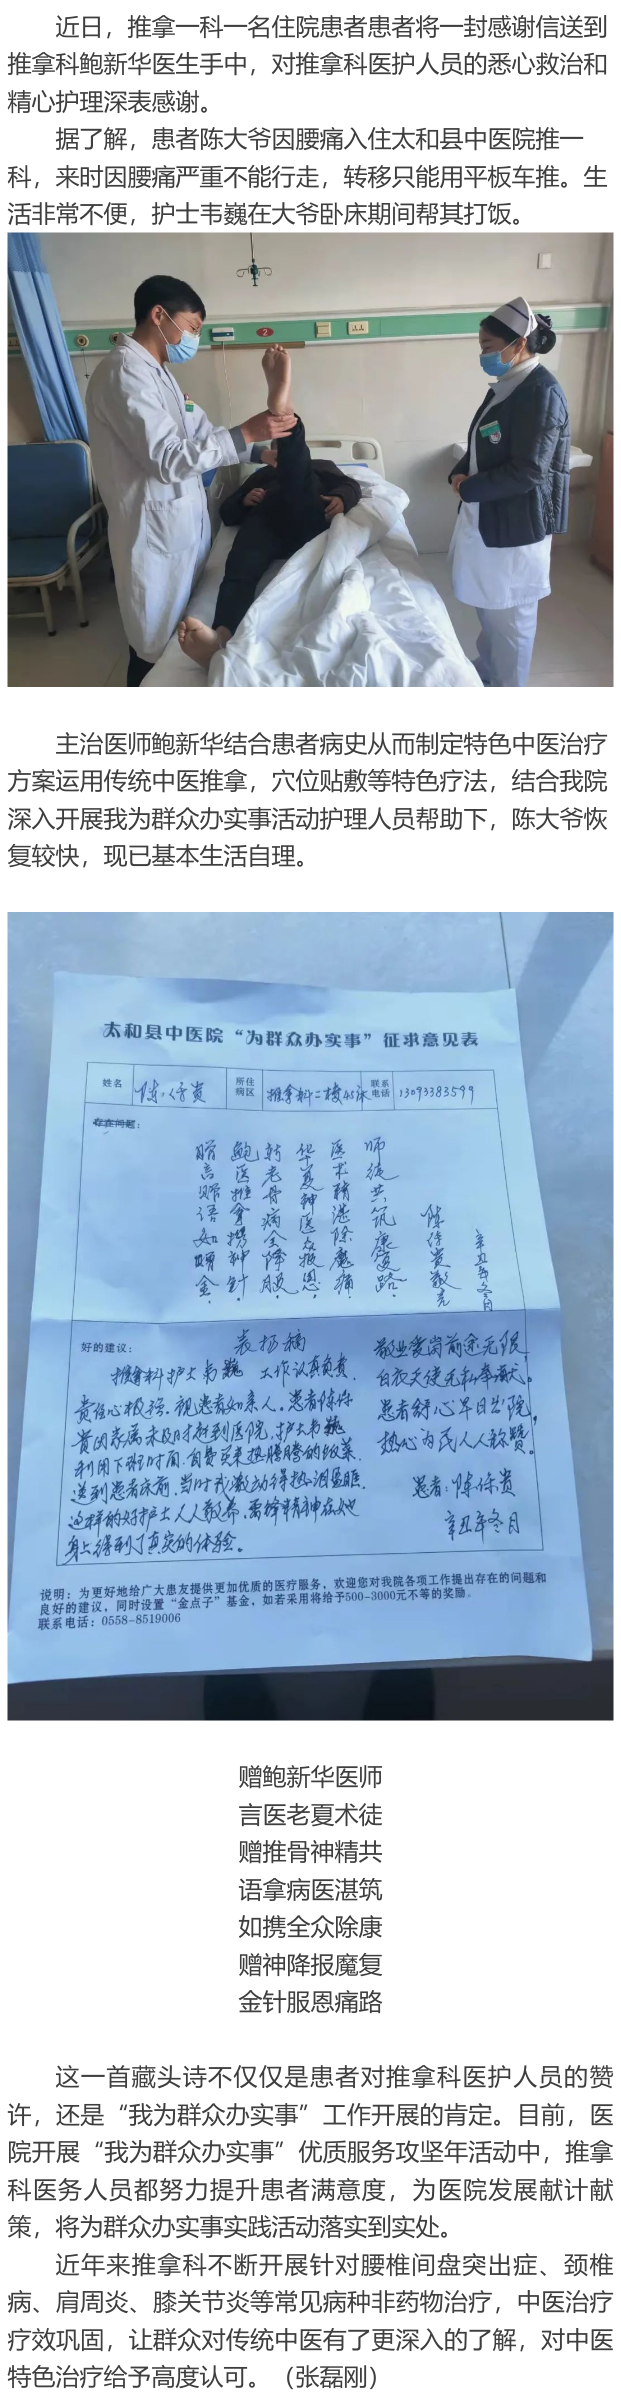 近日，推拿一科一名住院患者患者将一封感谢信送到
推拿科鲍新华医生手中，对推拿科医护人员的悉心救治和
精心护理深表感谢。
据了解，患者陈大爷因腰痛入住太和县中医院推一
科，来时因腰痛严重不能行走，转移只能用平板车推。生
活非常不便，护士韦巍在大爷卧床期间帮其打饭。
2
主治医师鲍新华结合患者病史从而制定特色中医治疗
方案运用传统中医推拿，穴位贴敷等特色疗法，结合我院
深入开展我为群众办实事活动护理人员帮助下，陈大爷恢
复较快，现已基本生活自理。
太和县中医院“为群众办实事”征求意见表
姓名 陈保贵 所住病区 推拿科二楼45床 联系电话 13093383599
存在问题：
赠鲍新华医师
言医老夏术徒
赠推骨神精共
语拿病医湛筑
如携全众除康
赠神降报魔复
金针服恩痛路
陈保贵敬言
辛丑年冬月
好的建议：
表扬稿
推拿科护士韦巍 工作认真负责，
责任心极强，视患者如亲人。患者陈保
贵因亲属未及时赶到医院，护士韦巍
利用下班时间，自费买来热腾腾的饭菜，
送到患者床前，当时我激动得热泪盈眶，
这样的好护士人人敬养，雷锋精神在她
身上得到了真实的体验。
敬业爱岗前途无限，
白衣天使无私奉献。
患者舒心早日出院，
热心为民人人称赞。
患者：陈保贵
辛丑年冬月
说明：为更好地给广大患友提供更加优质的医疗服务，欢迎您对我院各项工作提出存在的问题和
良好的建议，同时设置“金点子”基金，如若采用将给予500-3000元不等的奖励。
联系电话：0558-8519006
赠鲍新华医师
言医老夏术徒
赠推骨神精共
语拿病医湛筑
如携全众除康
赠神降报魔复
金针服恩痛路
这一首藏头诗不仅仅是患者对推拿科医护人员的赞
许，还是“我为群众办实事”工作开展的肯定。目前，医
院开展“我为群众办实事”优质服务攻坚年活动中，推拿
科医务人员都努力提升患者满意度，为医院发展献计献
策，将为群众办实事实践活动落实到实处。
近年来推拿科不断开展针对腰椎间盘突出症、颈椎
病、肩周炎、膝关节炎等常见病种非药物治疗，中医治疗
疗效巩固，让群众对传统中医有了更深入的了解，对中医
特色治疗给予高度认可。（张磊刚）